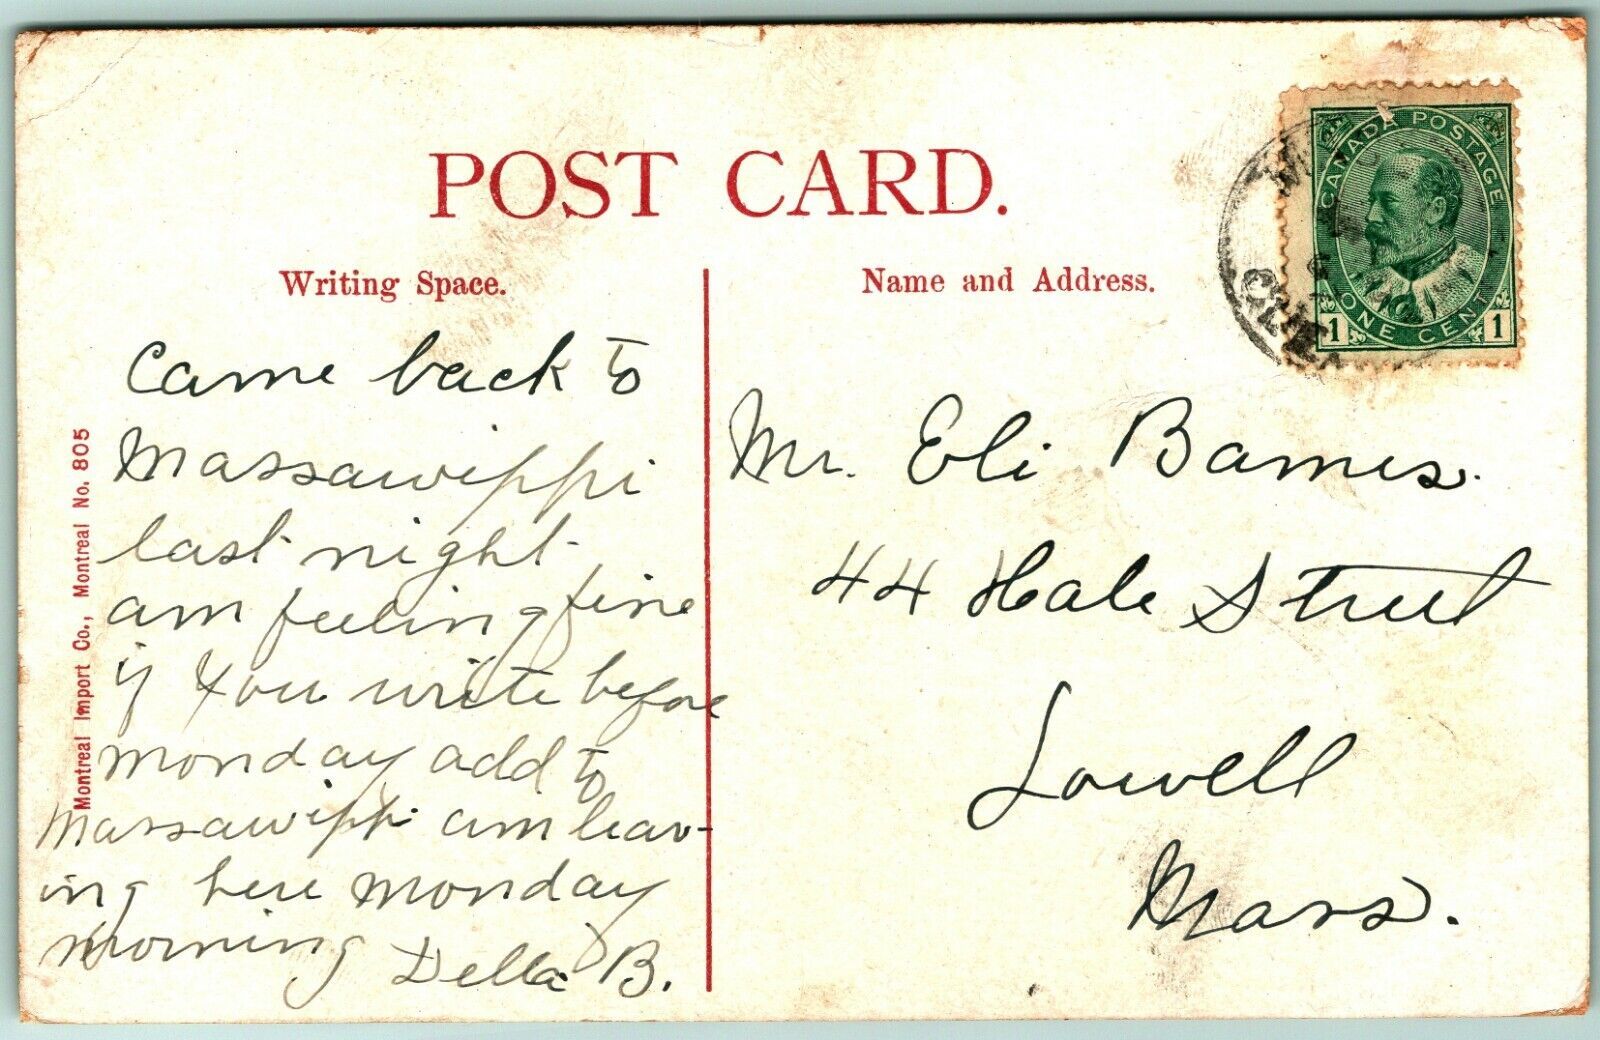 POST CARD.
Writing Space.
Came back to
Massawippi
last night
am feeling fine
if you write before
monday add to
Massawippi am leav-
ing here Monday
morning
Della B.
Montreal Import Co., Montreal No. 805
Name and Address.
CANADA POSTAGE
1 ONE CENT 1
Mr. Eli Barnes.
44 Hale Street
Lowell
Mass.